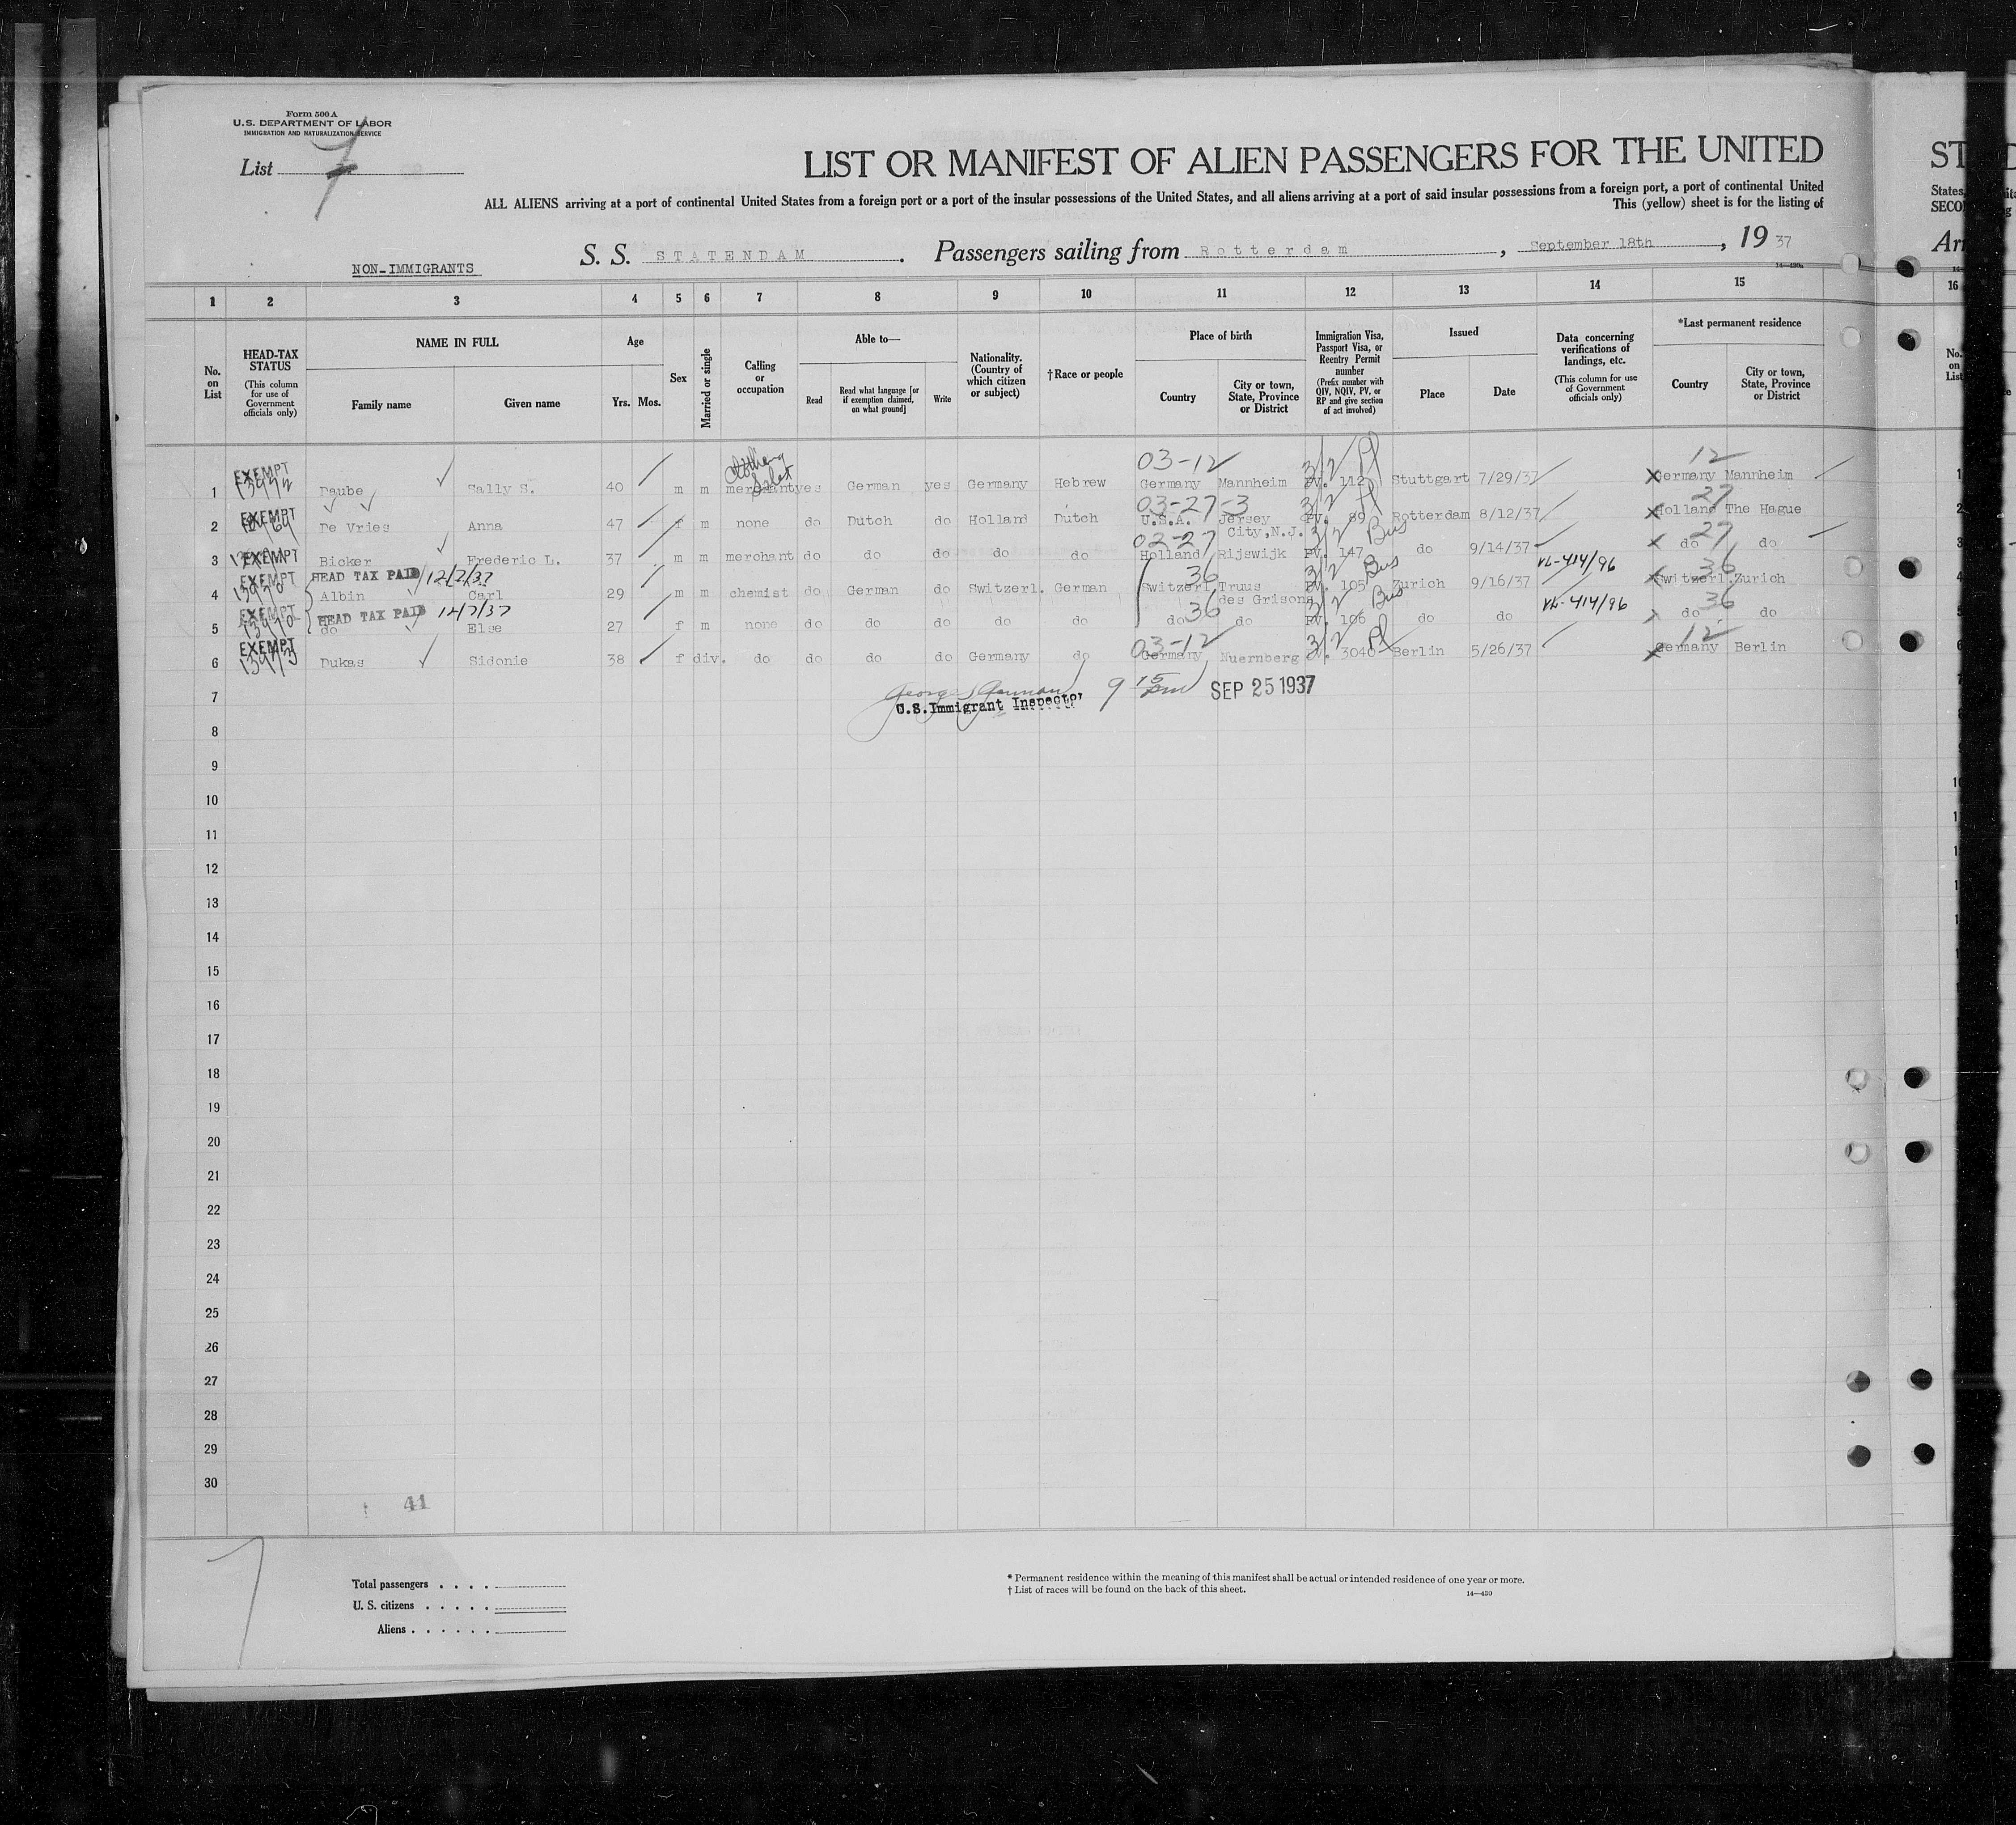 Form 500 A
U.S. DEPARTMENT OF LABOR
IMMIGRATION AND NATURALIZATION SERVICE
List 7
LIST OR MANIFEST OF ALIEN PASSENGERS FOR THE UNITED
ALL ALIENS arriving at a port of continental United States from a foreign port or a port of the insular possessions of the United States, and all aliens arriving at a port of said insular possessions from a foreign port, a port of continental United
This (yellow) sheet is for the listing of
NON-IMMIGRANTS S. S. STATENDAM. Passengers sailing from Rotterdam, September 18th, 19 37
1 2 3 4 5 6 7 8 9 10 11 12 13 14 15 16
No. on List
HEAD-TAX STATUS (This column for use of Government officials only)
NAME IN FULL Family name Given name
Age Yrs. Mos.
Sex
Married or single
Calling or occupation
Able to— Read Read what language [or if exemption claimed, on what ground] Write
Nationality. (Country of which citizen or subject)
†Race or people
Place of birth Country City or town, State, Province or District
Immigration Visa, Passport Visa, or Reentry Permit number (Prefix number with QIV, NQIV, PV, or RP and give section of act involved)
Issued Place Date
Data concerning verifications of landings, etc. (This column for use of Government officials only)
*Last permanent residence Country City or town, State, Province or District
03-12 3/2 Pl 12
1 EXEMPT Daube Sally S. 40 m m merchant yes German yes Germany Hebrew Germany Mannheim PV. 112 Stuttgart 7/29/37 Germany Mannheim
03-27-3 3/2 Pl 27
2 EXEMPT De Vries Anna 47 f m none do Dutch do Holland Dutch U.S.A. Jersey City, N.J. PV. 89 Rotterdam 8/12/37 Holland The Hague
02-27 3/2 Bus 27
3 EXEMPT Bicker Frederic L. 37 m m merchant do do do do do Holland Rijswijk PV. 147 do 9/14/37 do do
HEAD TAX PAID 12/7/37 36 3/2 Bus VL-414/96 36
4 EXEMPT Albin Carl 29 m m chemist do German do Switzerl. German Switzerl. Truus des Grisons PV. 105 Zurich 9/16/37 Switzerl. Zurich
HEAD TAX PAID 12/7/37 36 3/2 Bus VL-414/96 36
5 EXEMPT do Else 27 f m none do do do do do do do PV. 106 do do do do
03-12 3/2 Pl 12
6 EXEMPT Dukas Sidonie 38 f div. do do do do Germany do Germany Nuernberg 3040 Berlin 5/26/37 Germany Berlin
U.S. Immigrant Inspector 9 15 pm SEP 25 1937
7
8
9
10
11
12
13
14
15
16
17
18
19
20
21
22
23
24
25
26
27
28
29
30
41
7
Total passengers
U. S. citizens
Aliens
* Permanent residence within the meaning of this manifest shall be actual or intended residence of one year or more.
† List of races will be found on the back of this sheet.
14—430